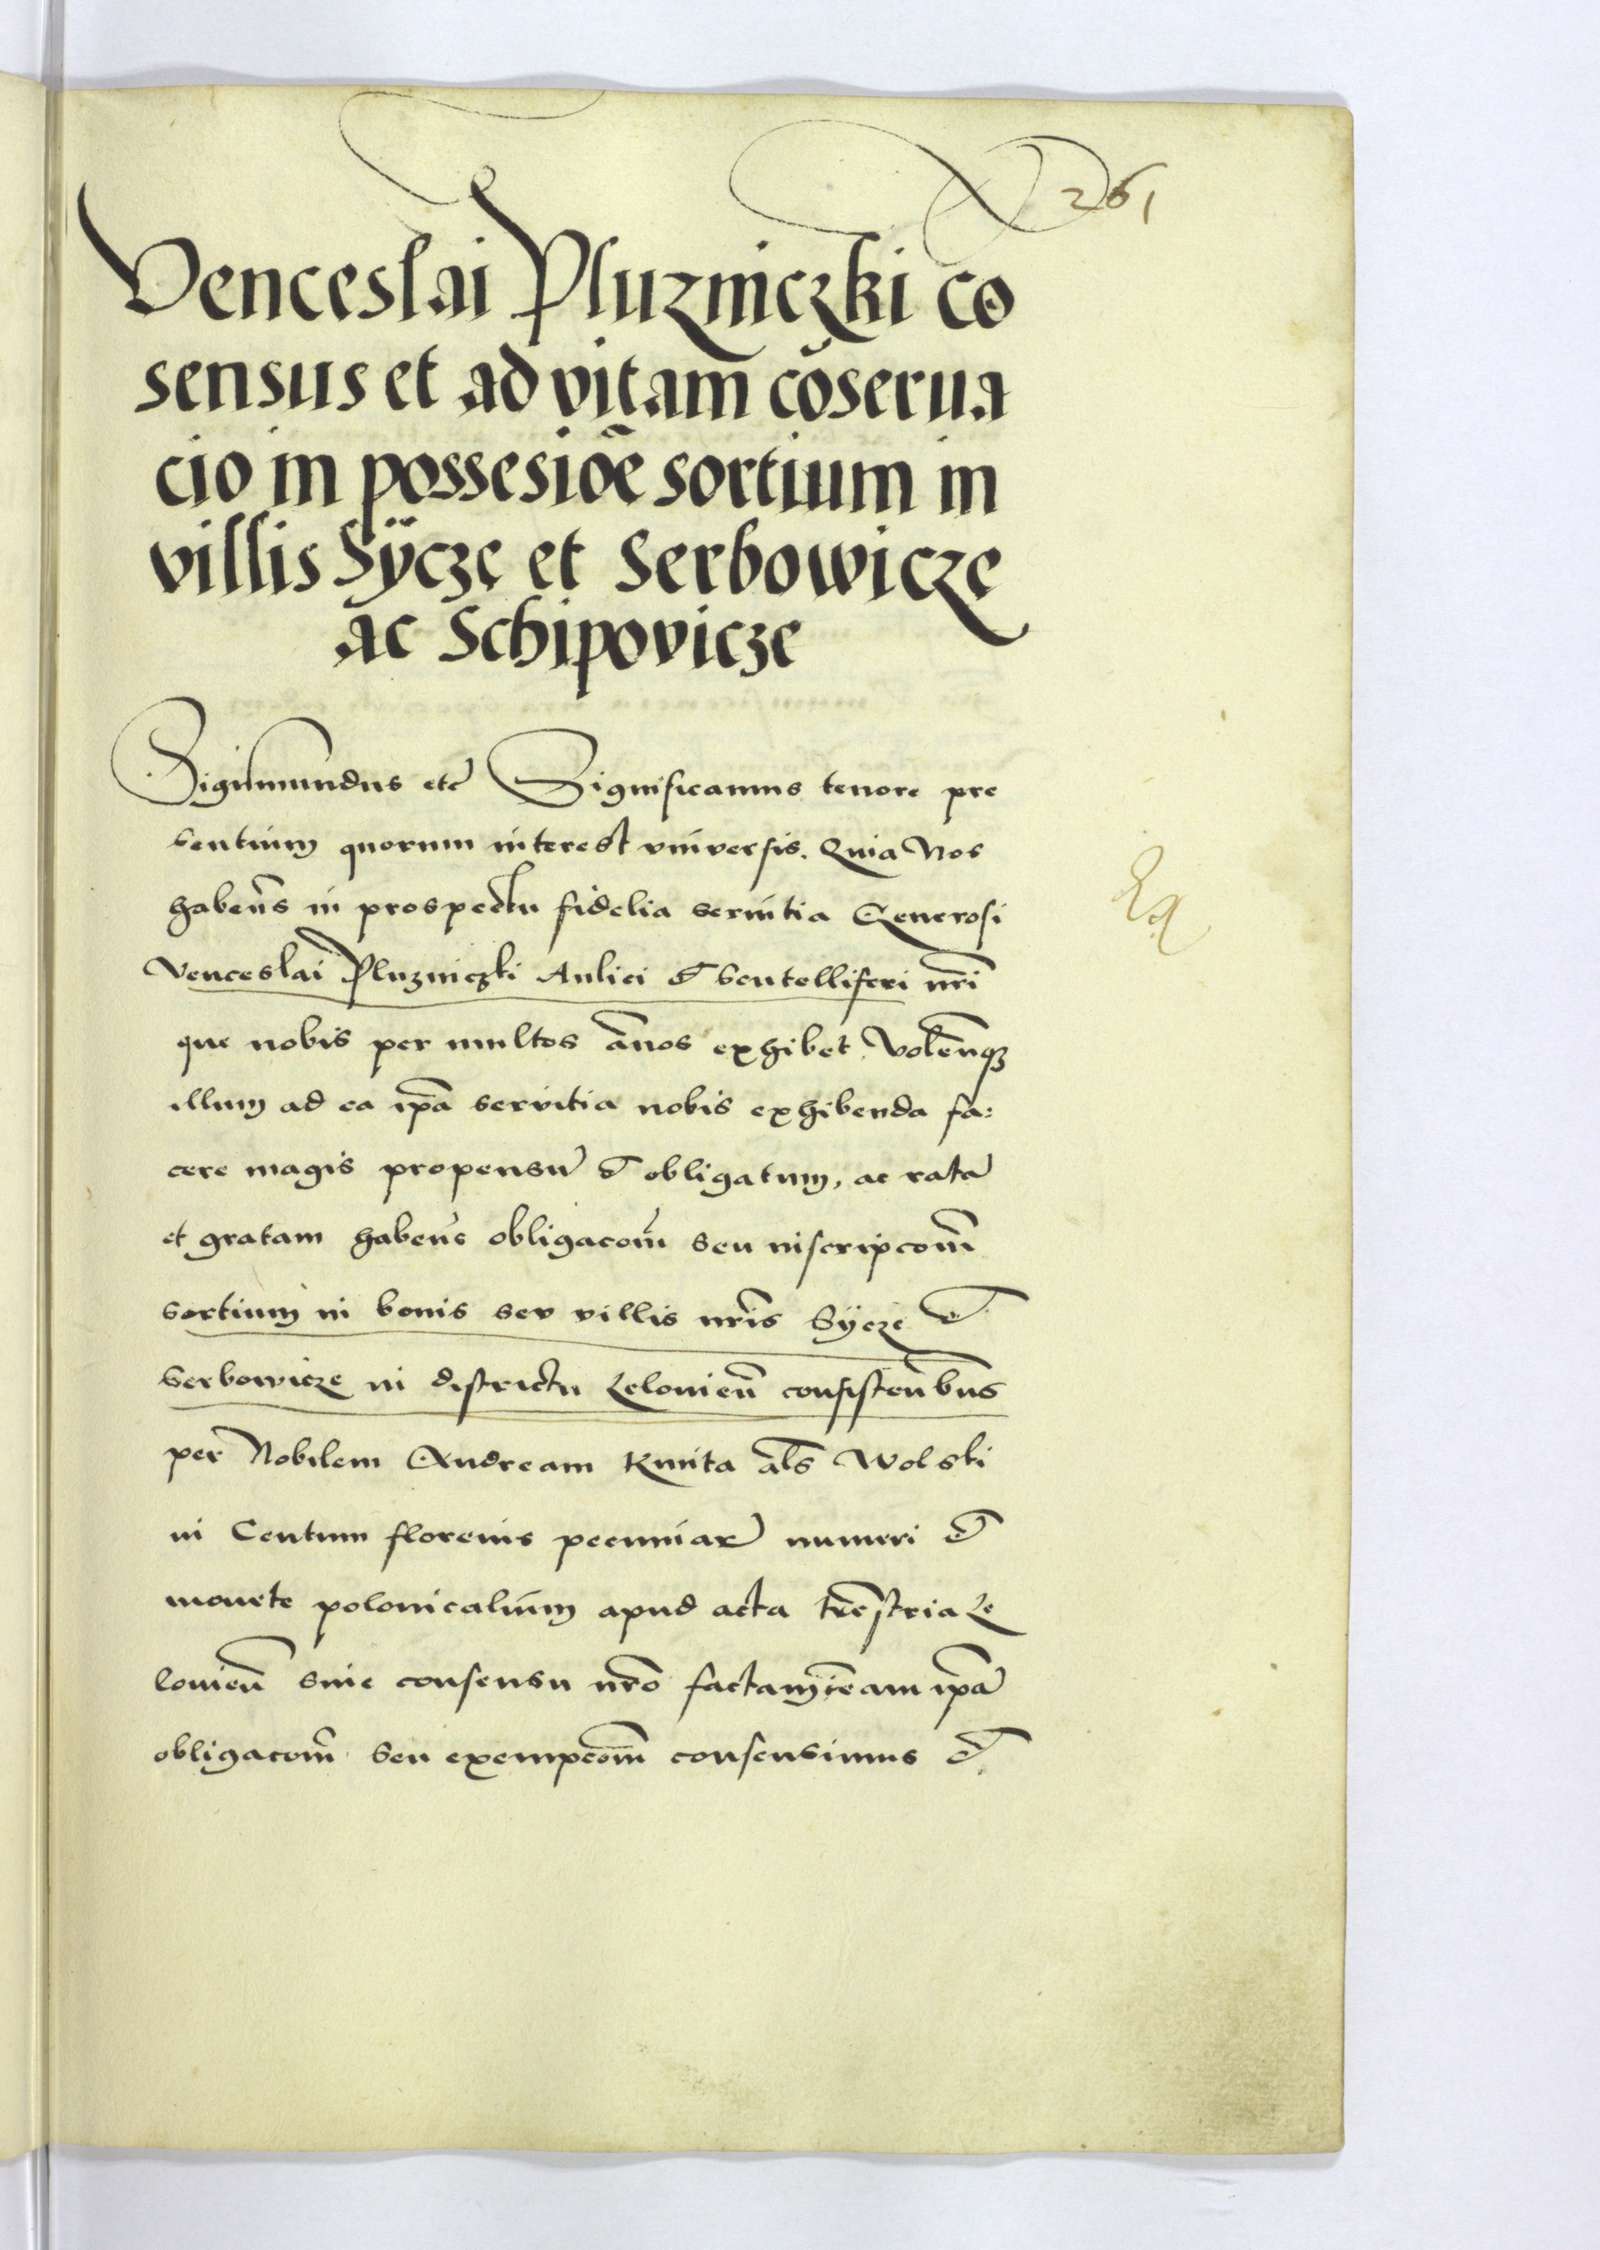 261
Venceslai Pluzniczki co
sensus et ad vitam cōserua
cio in possesiōe sortium in
villis Sÿcze et Serbowicze
ac Schipovicze
Sigismundus etc Significamus tenore pre
sentium quorum interest vniversis. Quia Nos
habeñs in prospectu fidelia servitia Generosi
Venceslai Pluzniczki Aulici et scutelliferi nr̃i
que nobis per multos ãnos exhibet, Voleñq₃
illum ad ea ip̃a servitia nobis exhibenda fa:
cere magis propensũ et obligatum, ac ratã
et gratam habeñs obligacom̃ seu inscripcom̃
sortium in bonis sev villis nr̃is Sÿcze et
Serbowicze in districtu Lelovieñ consisteñbus
per Nobilem Andream Kmita al̃s Wolski
in Centum florenis pecuniar̃ numeri et
monete polonicalium apud acta tr̃estria Le
lovieñ sine consensu nr̃o factam, eam ip̃ã
obligacom̃ seu exempcom̃ consensimus et